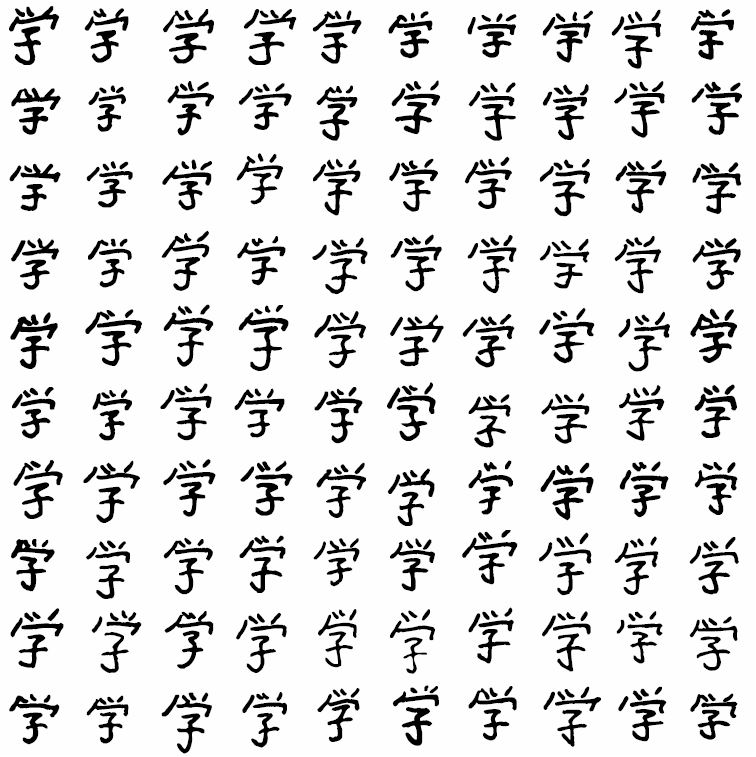 学学学学学学学学学学
学学学学学学学学学学
学学学学学学学学学学
学学学学学学学学学学
学学学学学学学学学学
学学学学学学学学学学
学学学学学学学学学学
学学学学学学学学学学
学学学学学学学学学学
学学学学学学学学学学